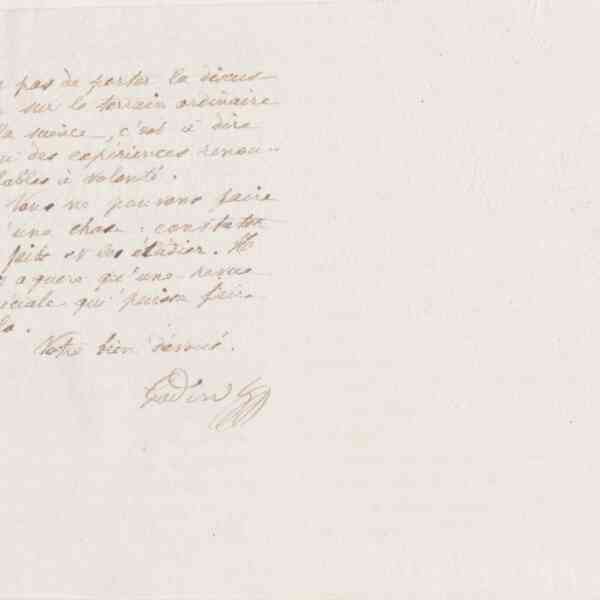 pas de porter la discus-
sur le terrain ordinaire
la science, c'est à dire
des expériences renou-
lables à volonté.
Nous ne pouvons faire
'une chose : constater
faits et les étudier. Il
a guère qu'une revue
éciale qui puisse faire
la.
Votre bien dévoué.
Godin